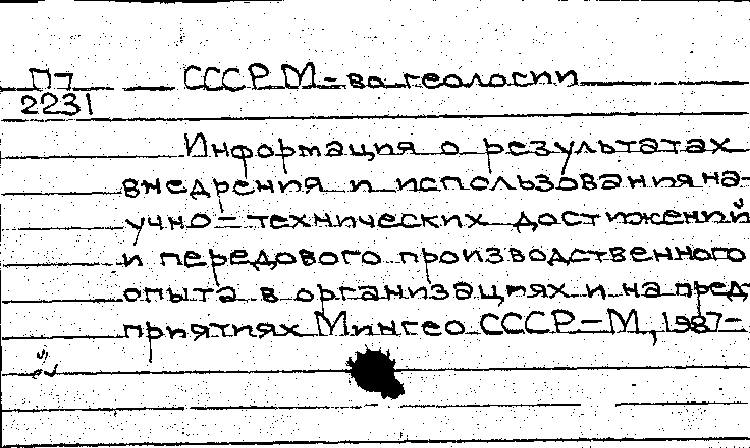 П7 СССР М-во геологии
2231
Информация о результатах
внедрения и использования на-
учно-технических достижений
и передового производственного
опыта в организациях и на пред-
приятиях Мингео СССР-М, 1987-